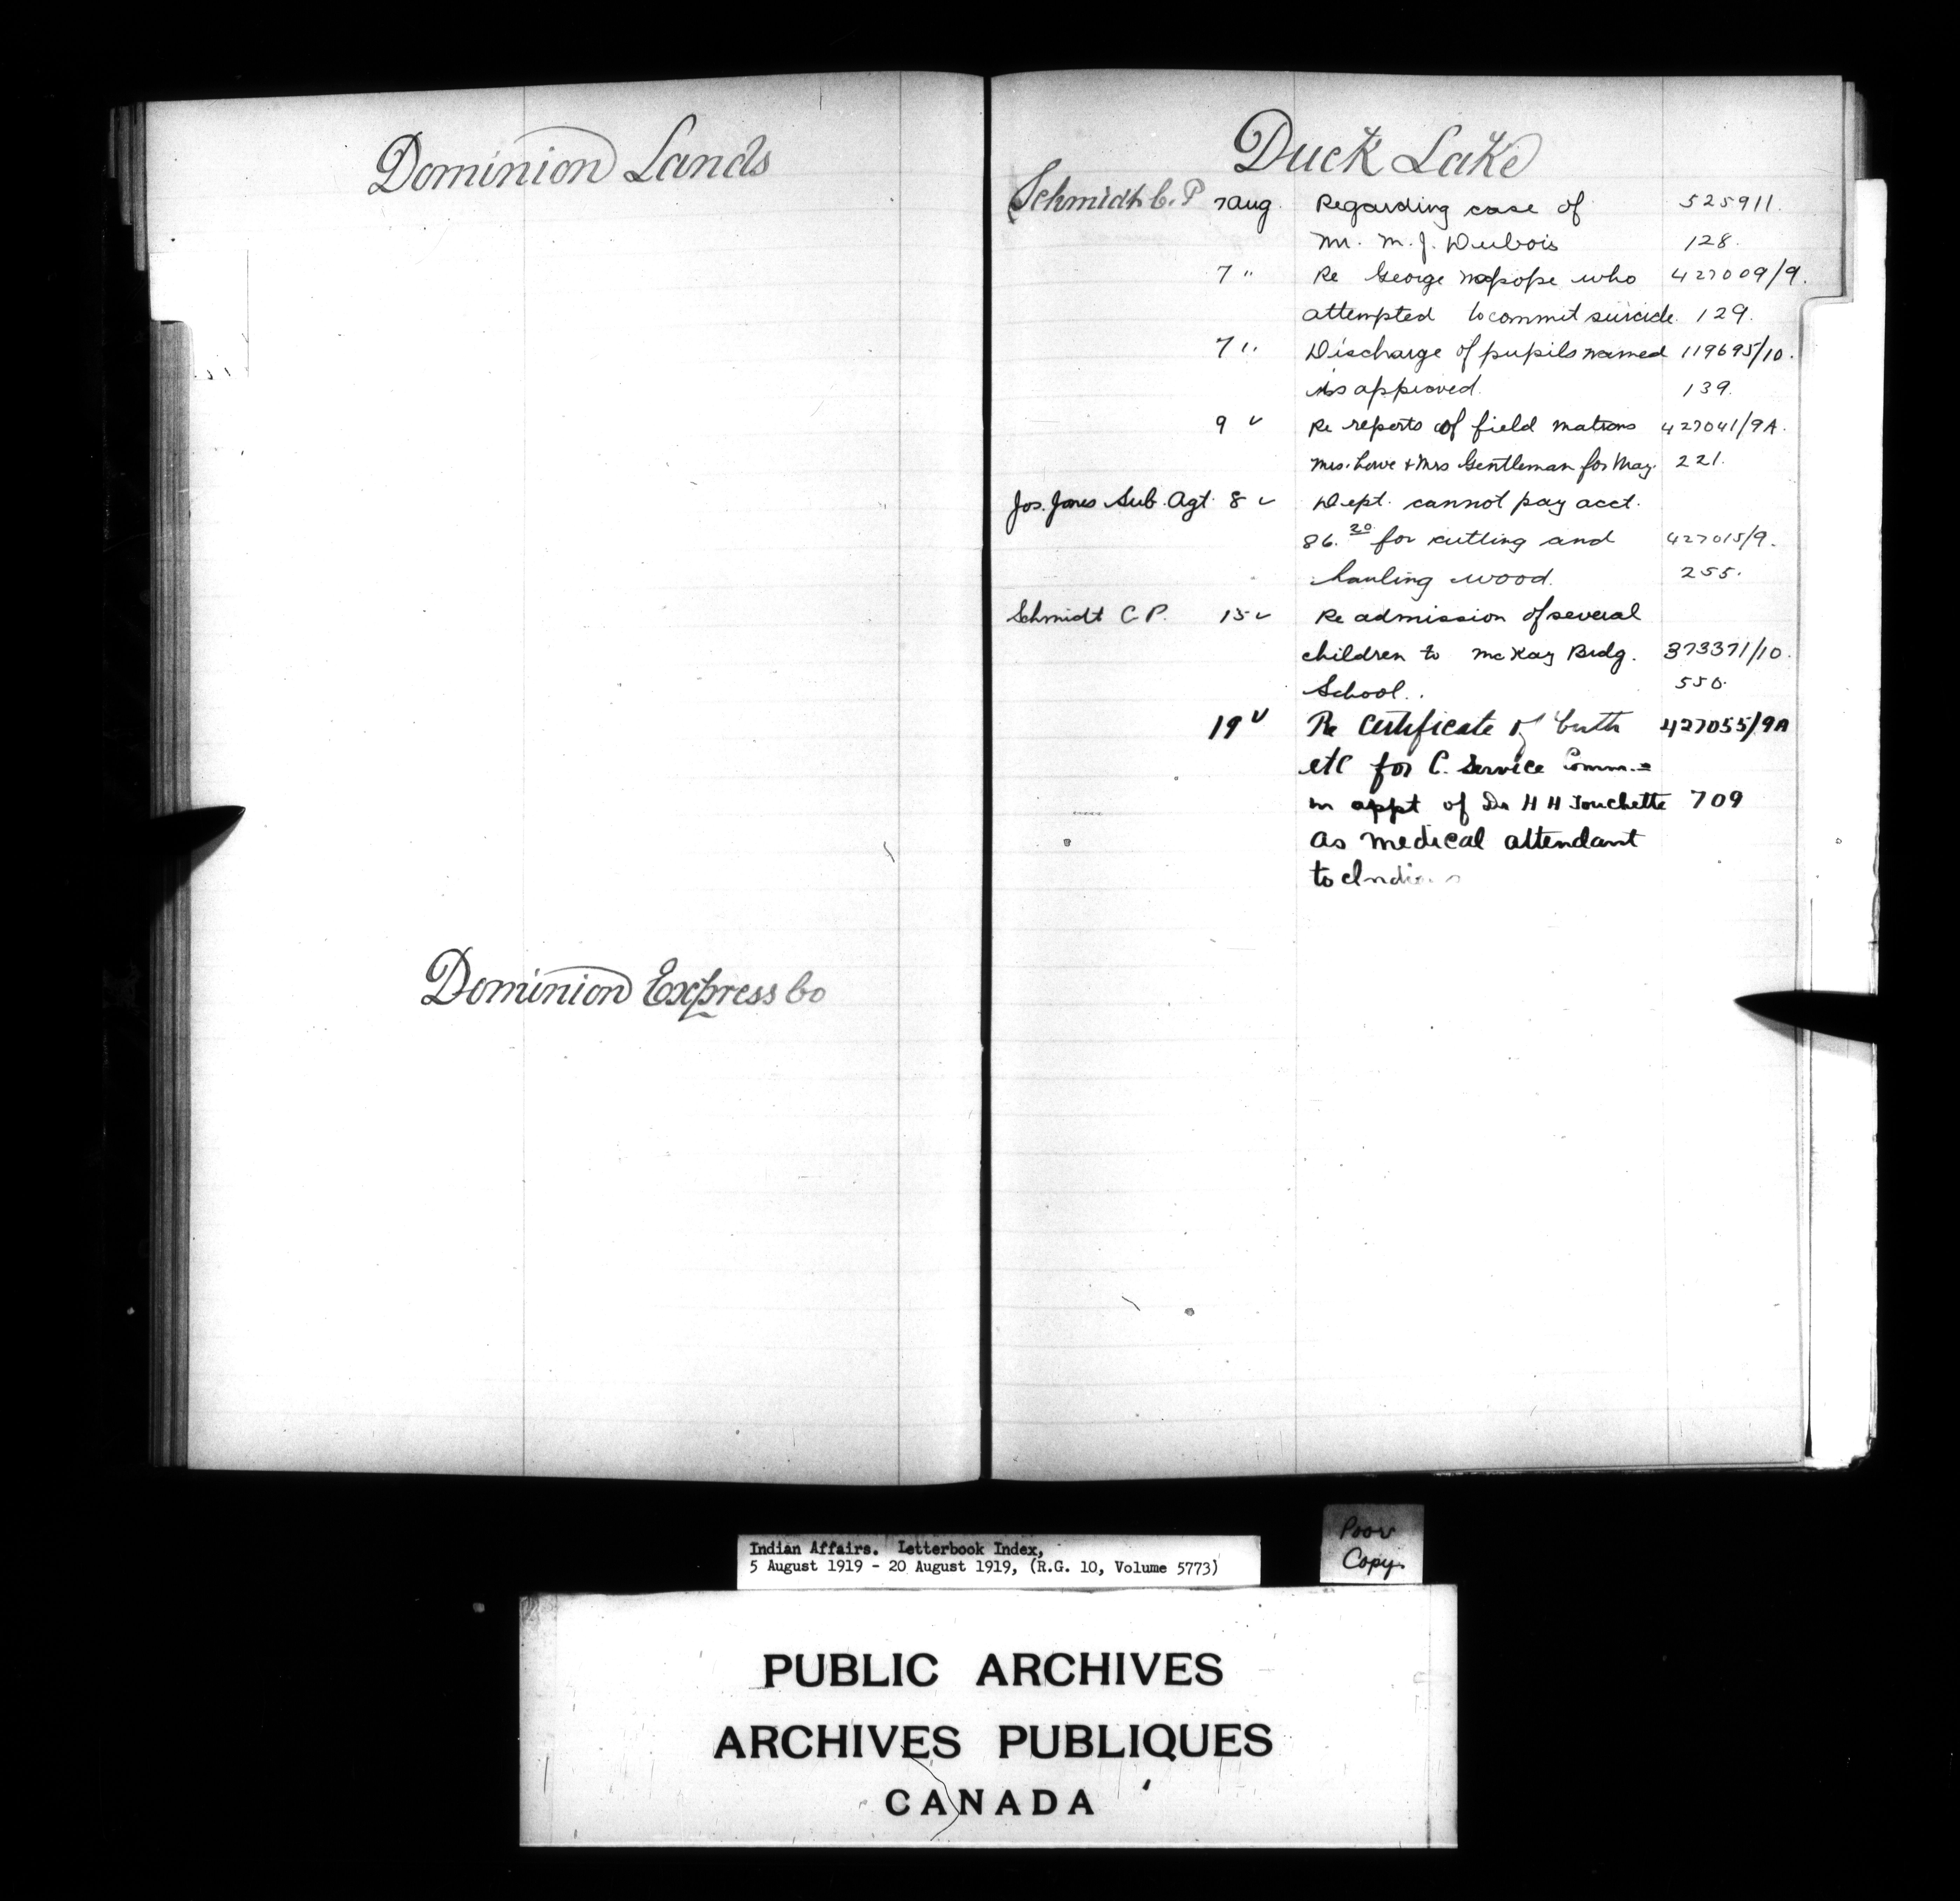 Dominion Lands
Dominion Express Co
Duck Lake
Schmidt C. P 7 Aug. Regarding case of 525911
Mr. M. J. Dubois 128.
7 " Re George who 427009/9.
attempted to commit suicide. 129.
7 " Discharge of pupils named 119695/10.
is approved. 139.
9 " Re reports of field matrons 427041/9A.
Mrs. Lowe & Mrs Gentleman for May. 221.
Jos. Jones Sub. Agt. 8 " Dept. cannot pay acct.
86.20 for cutting and 427015/9.
hauling wood. 255.
Schmidt C P. 15 " Re admission of several
children to McKay Brdg. 373371/10.
School. 550.
19 " Re Certificate of birth 427055/9A
etc for C. Service Comm.
in appt of Dr H H Touchette 709
as medical attendant
to Indians
Indian Affairs. Letterbook Index,
5 August 1919 - 20 August 1919, (R.G. 10, Volume 5773)
Poor
Copy.
PUBLIC ARCHIVES
ARCHIVES PUBLIQUES
CANADA